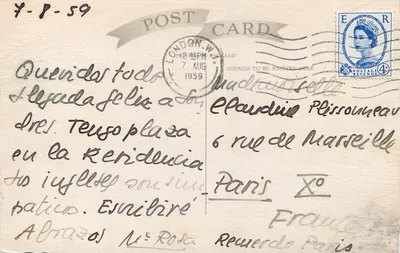 7-8-59
POST CARD
LONDON. W.1.
12 15 PM
7 AUG
1959
E R
Queridos todos
llegada feliz a Lon
dres. Tengo plaza
en la Residencia
los ingleses son sim
paticos. Escribiré
Abrazos Mª Rosa
Mademoiselle
Claudine Plissonneau
6 rue de Marseille
Paris Xº
France
Recuerdo Paris